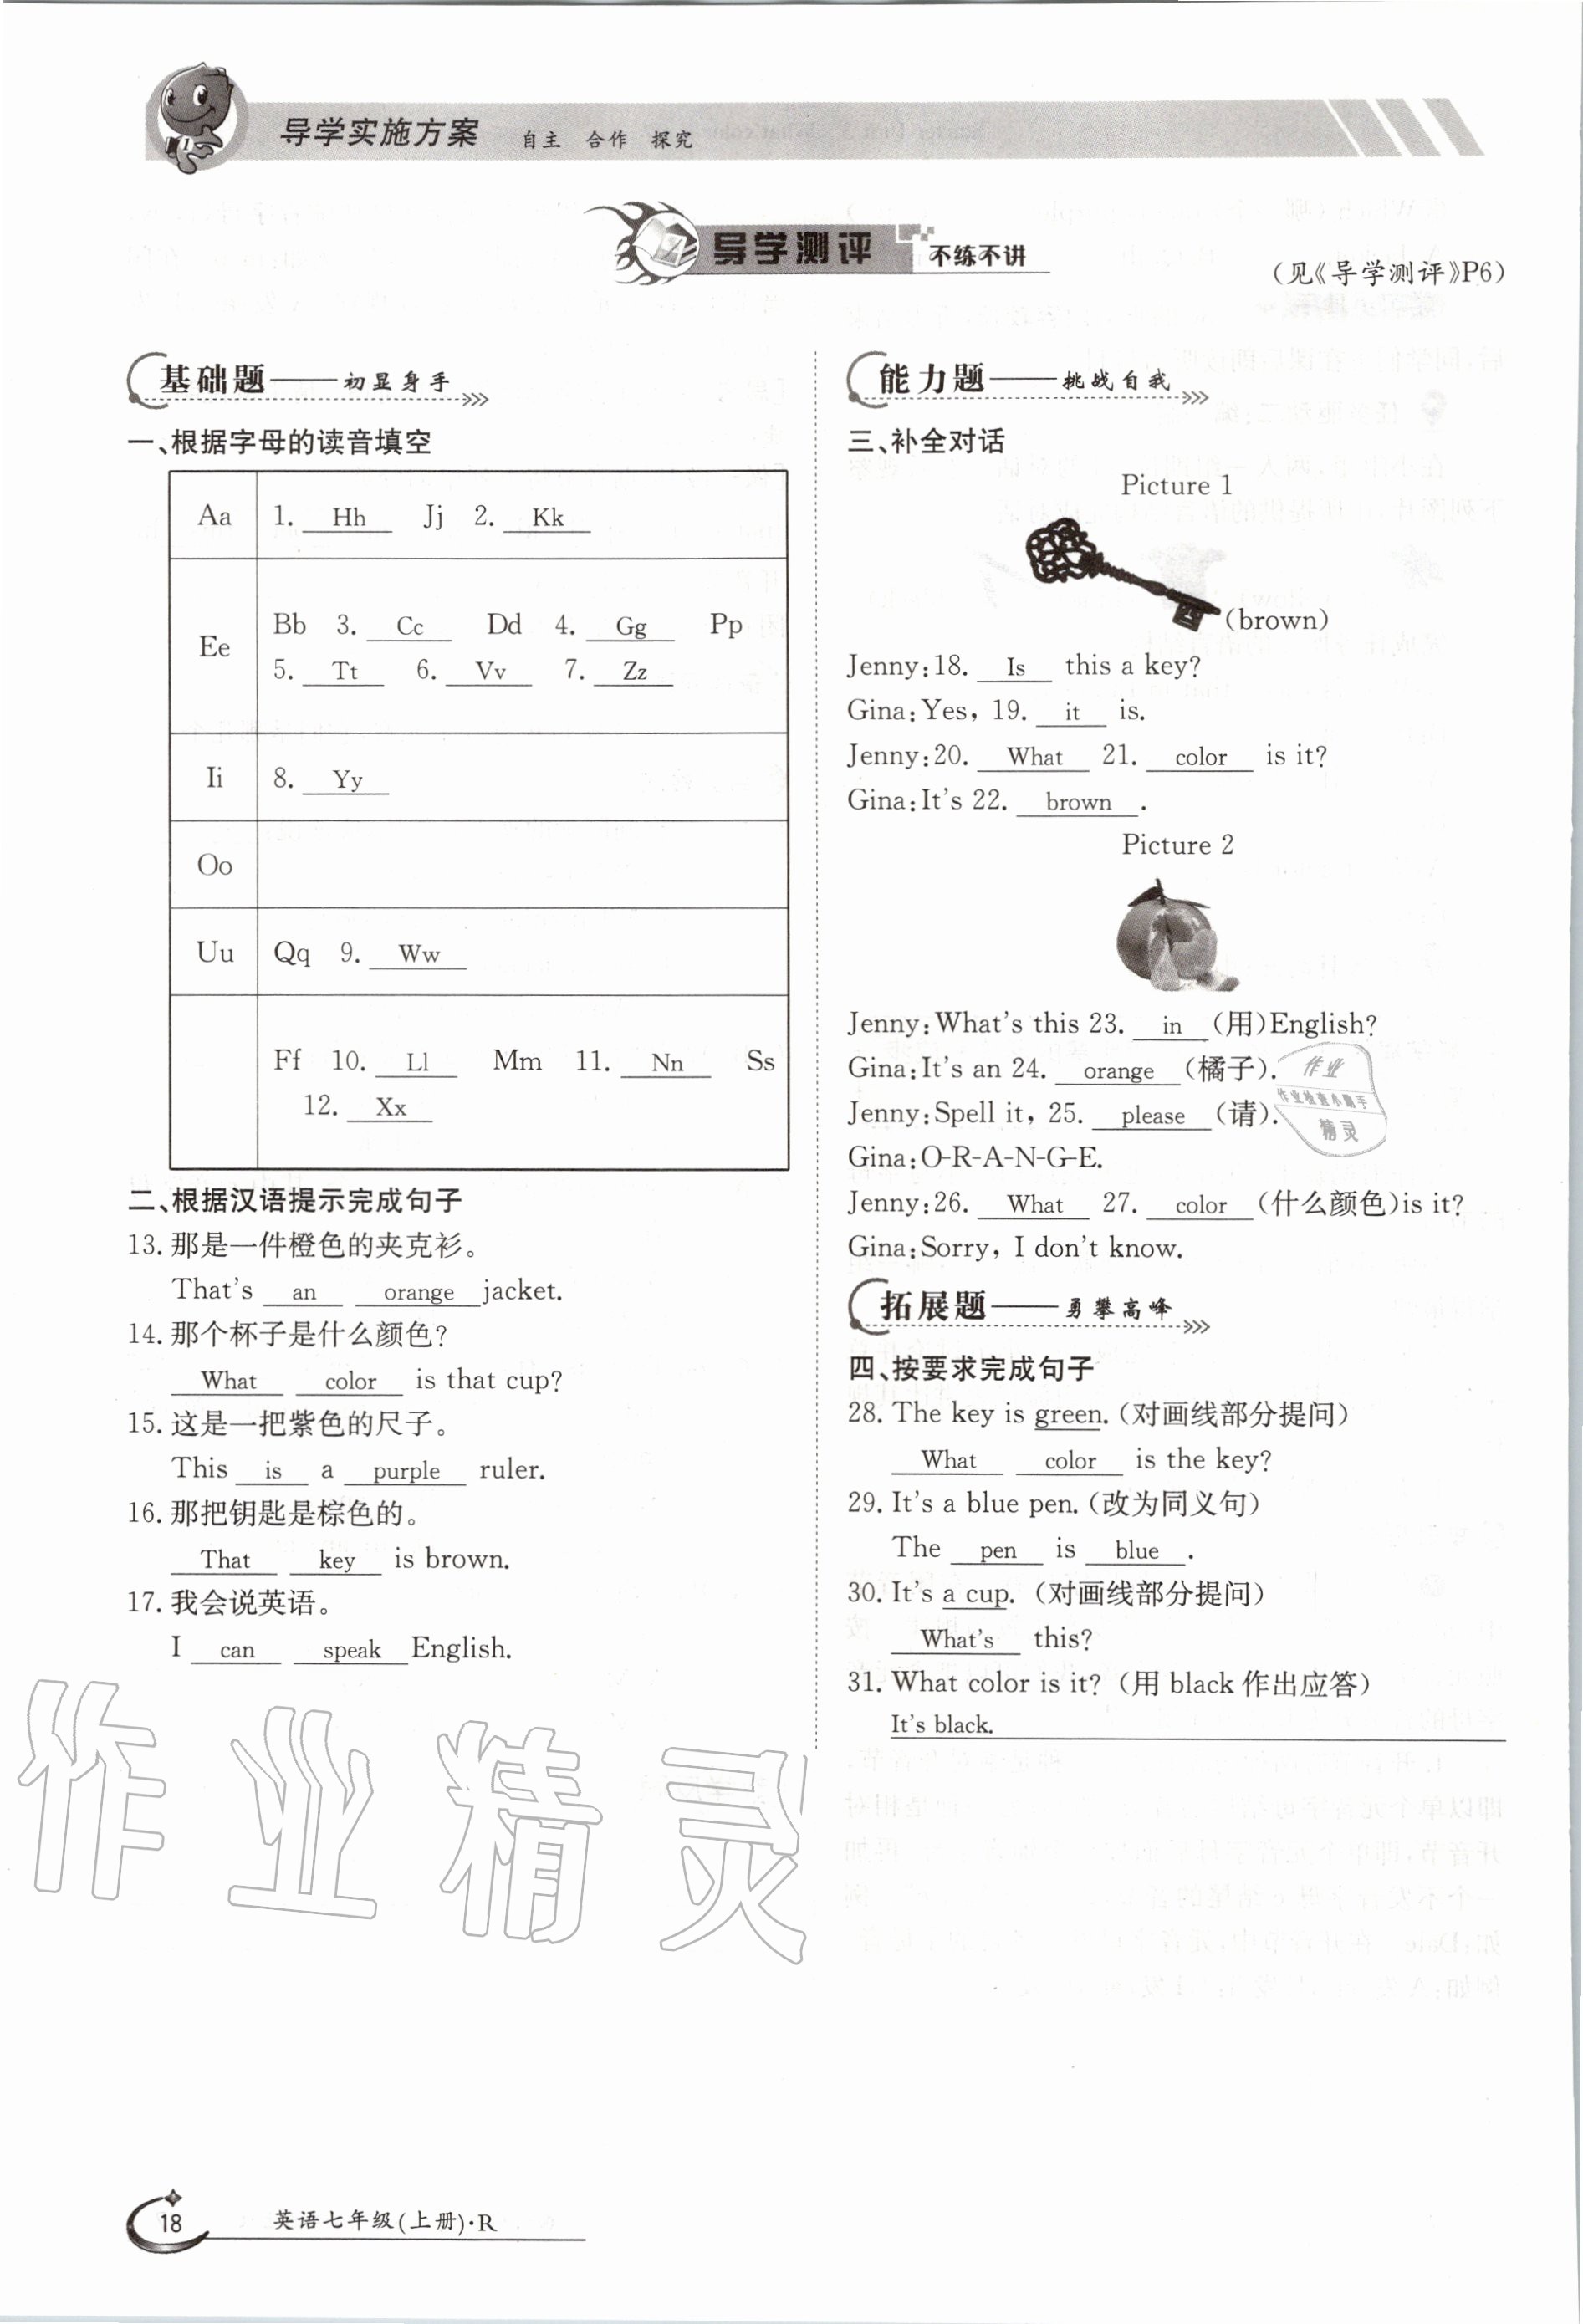 导学实施方案 自主 合作 探究
导学测评 不练不讲
(见《导学测评》P6)
基础题——初显身手
一、根据字母的读音填空
Aa 1. Hh Jj 2. Kk
Ee Bb 3. Cc Dd 4. Gg Pp
5. Tt 6. Vv 7. Zz
Ii 8. Yy
Oo
Uu Qq 9. Ww
Ff 10. Ll Mm 11. Nn Ss
12. Xx
二、根据汉语提示完成句子
13. 那是一件橙色的夹克衫。
That's an orange jacket.
14. 那个杯子是什么颜色?
What color is that cup?
15. 这是一把紫色的尺子。
This is a purple ruler.
16. 那把钥匙是棕色的。
That key is brown.
17. 我会说英语。
I can speak English.
能力题——挑战自我
三、补全对话
Picture 1
(brown)
Jenny:18. Is this a key?
Gina:Yes, 19. it is.
Jenny:20. What 21. color is it?
Gina:It's 22. brown .
Picture 2
Jenny:What's this 23. in (用)English?
Gina:It's an 24. orange (橘子).
Jenny:Spell it, 25. please (请).
Gina:O-R-A-N-G-E.
Jenny:26. What 27. color (什么颜色)is it?
Gina:Sorry, I don't know.
作业
作业检查小助手
精灵
拓展题——勇攀高峰
四、按要求完成句子
28. The key is green. (对画线部分提问)
What color is the key?
29. It's a blue pen. (改为同义句)
The pen is blue .
30. It's a cup. (对画线部分提问)
What's this?
31. What color is it? (用 black 作出应答)
It's black.
作业精灵
18 英语七年级(上册)·R